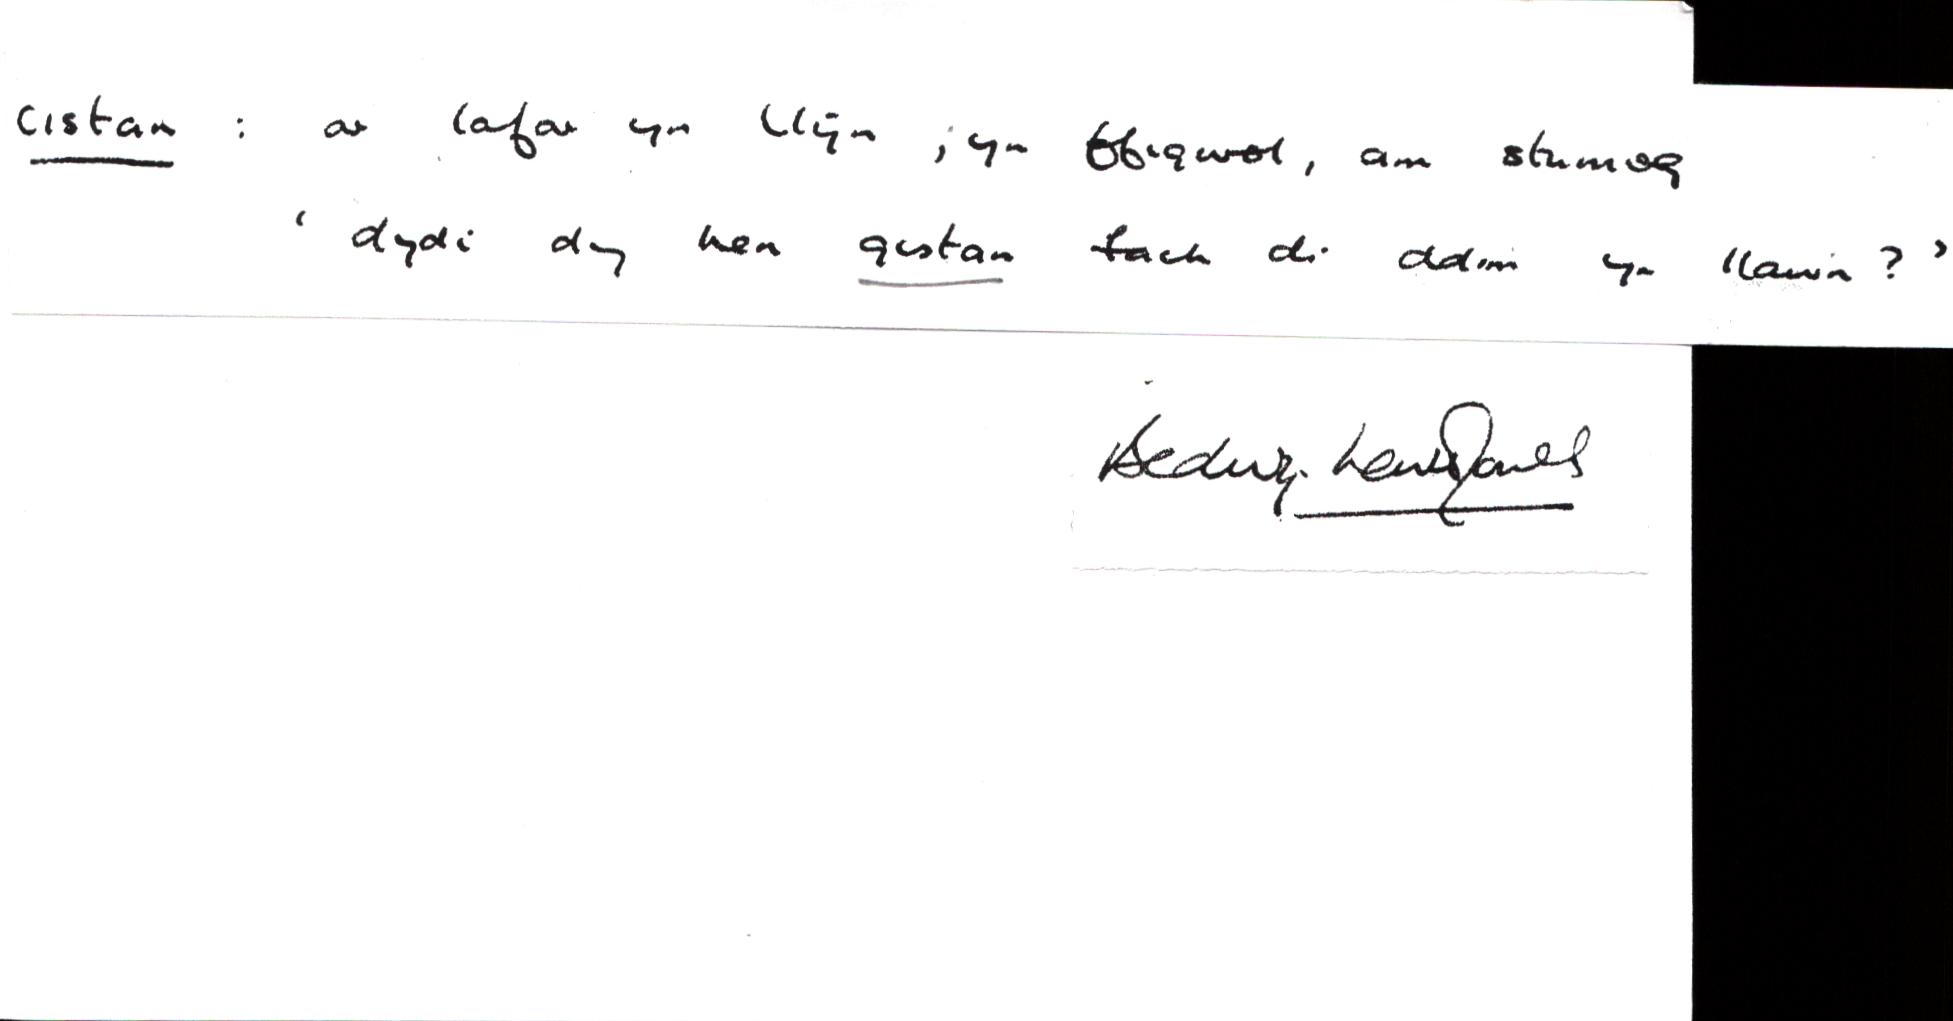 cistan : ar lafar yn Llŷn ; yn ffigurol, am stumog
‘ dydi dy hen gistan fach di ddim yn llawn ? ’
Bedwyr Lewis Jones